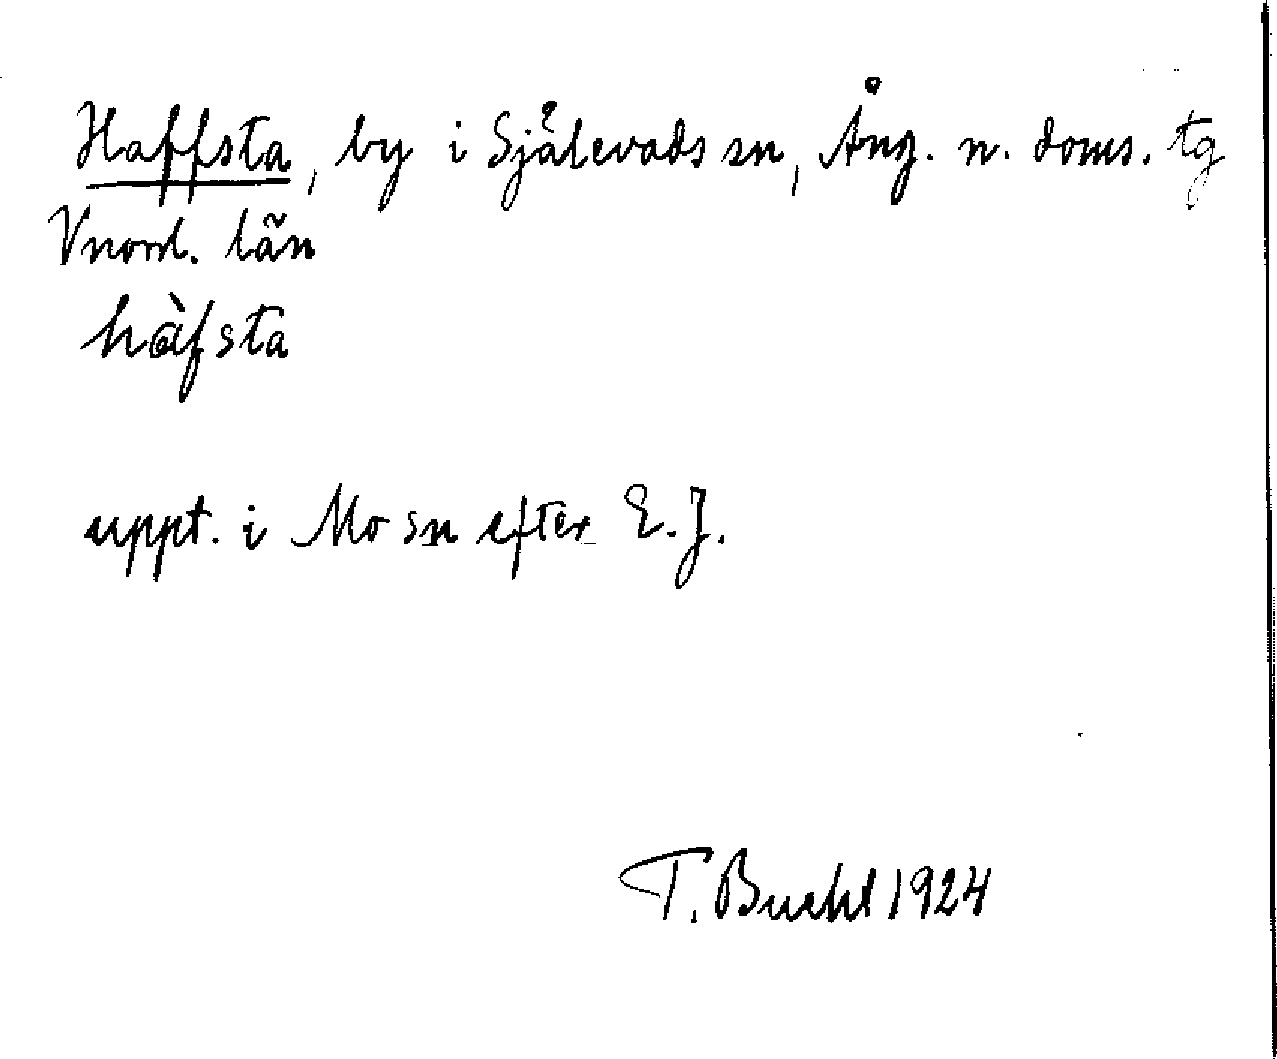 Haffsta, by i Själevads sn, Ång. n. doms. tg
Vnorrl. län
hàfsta
uppt. i Mo sn efter E. J.
T. Bucht 1924